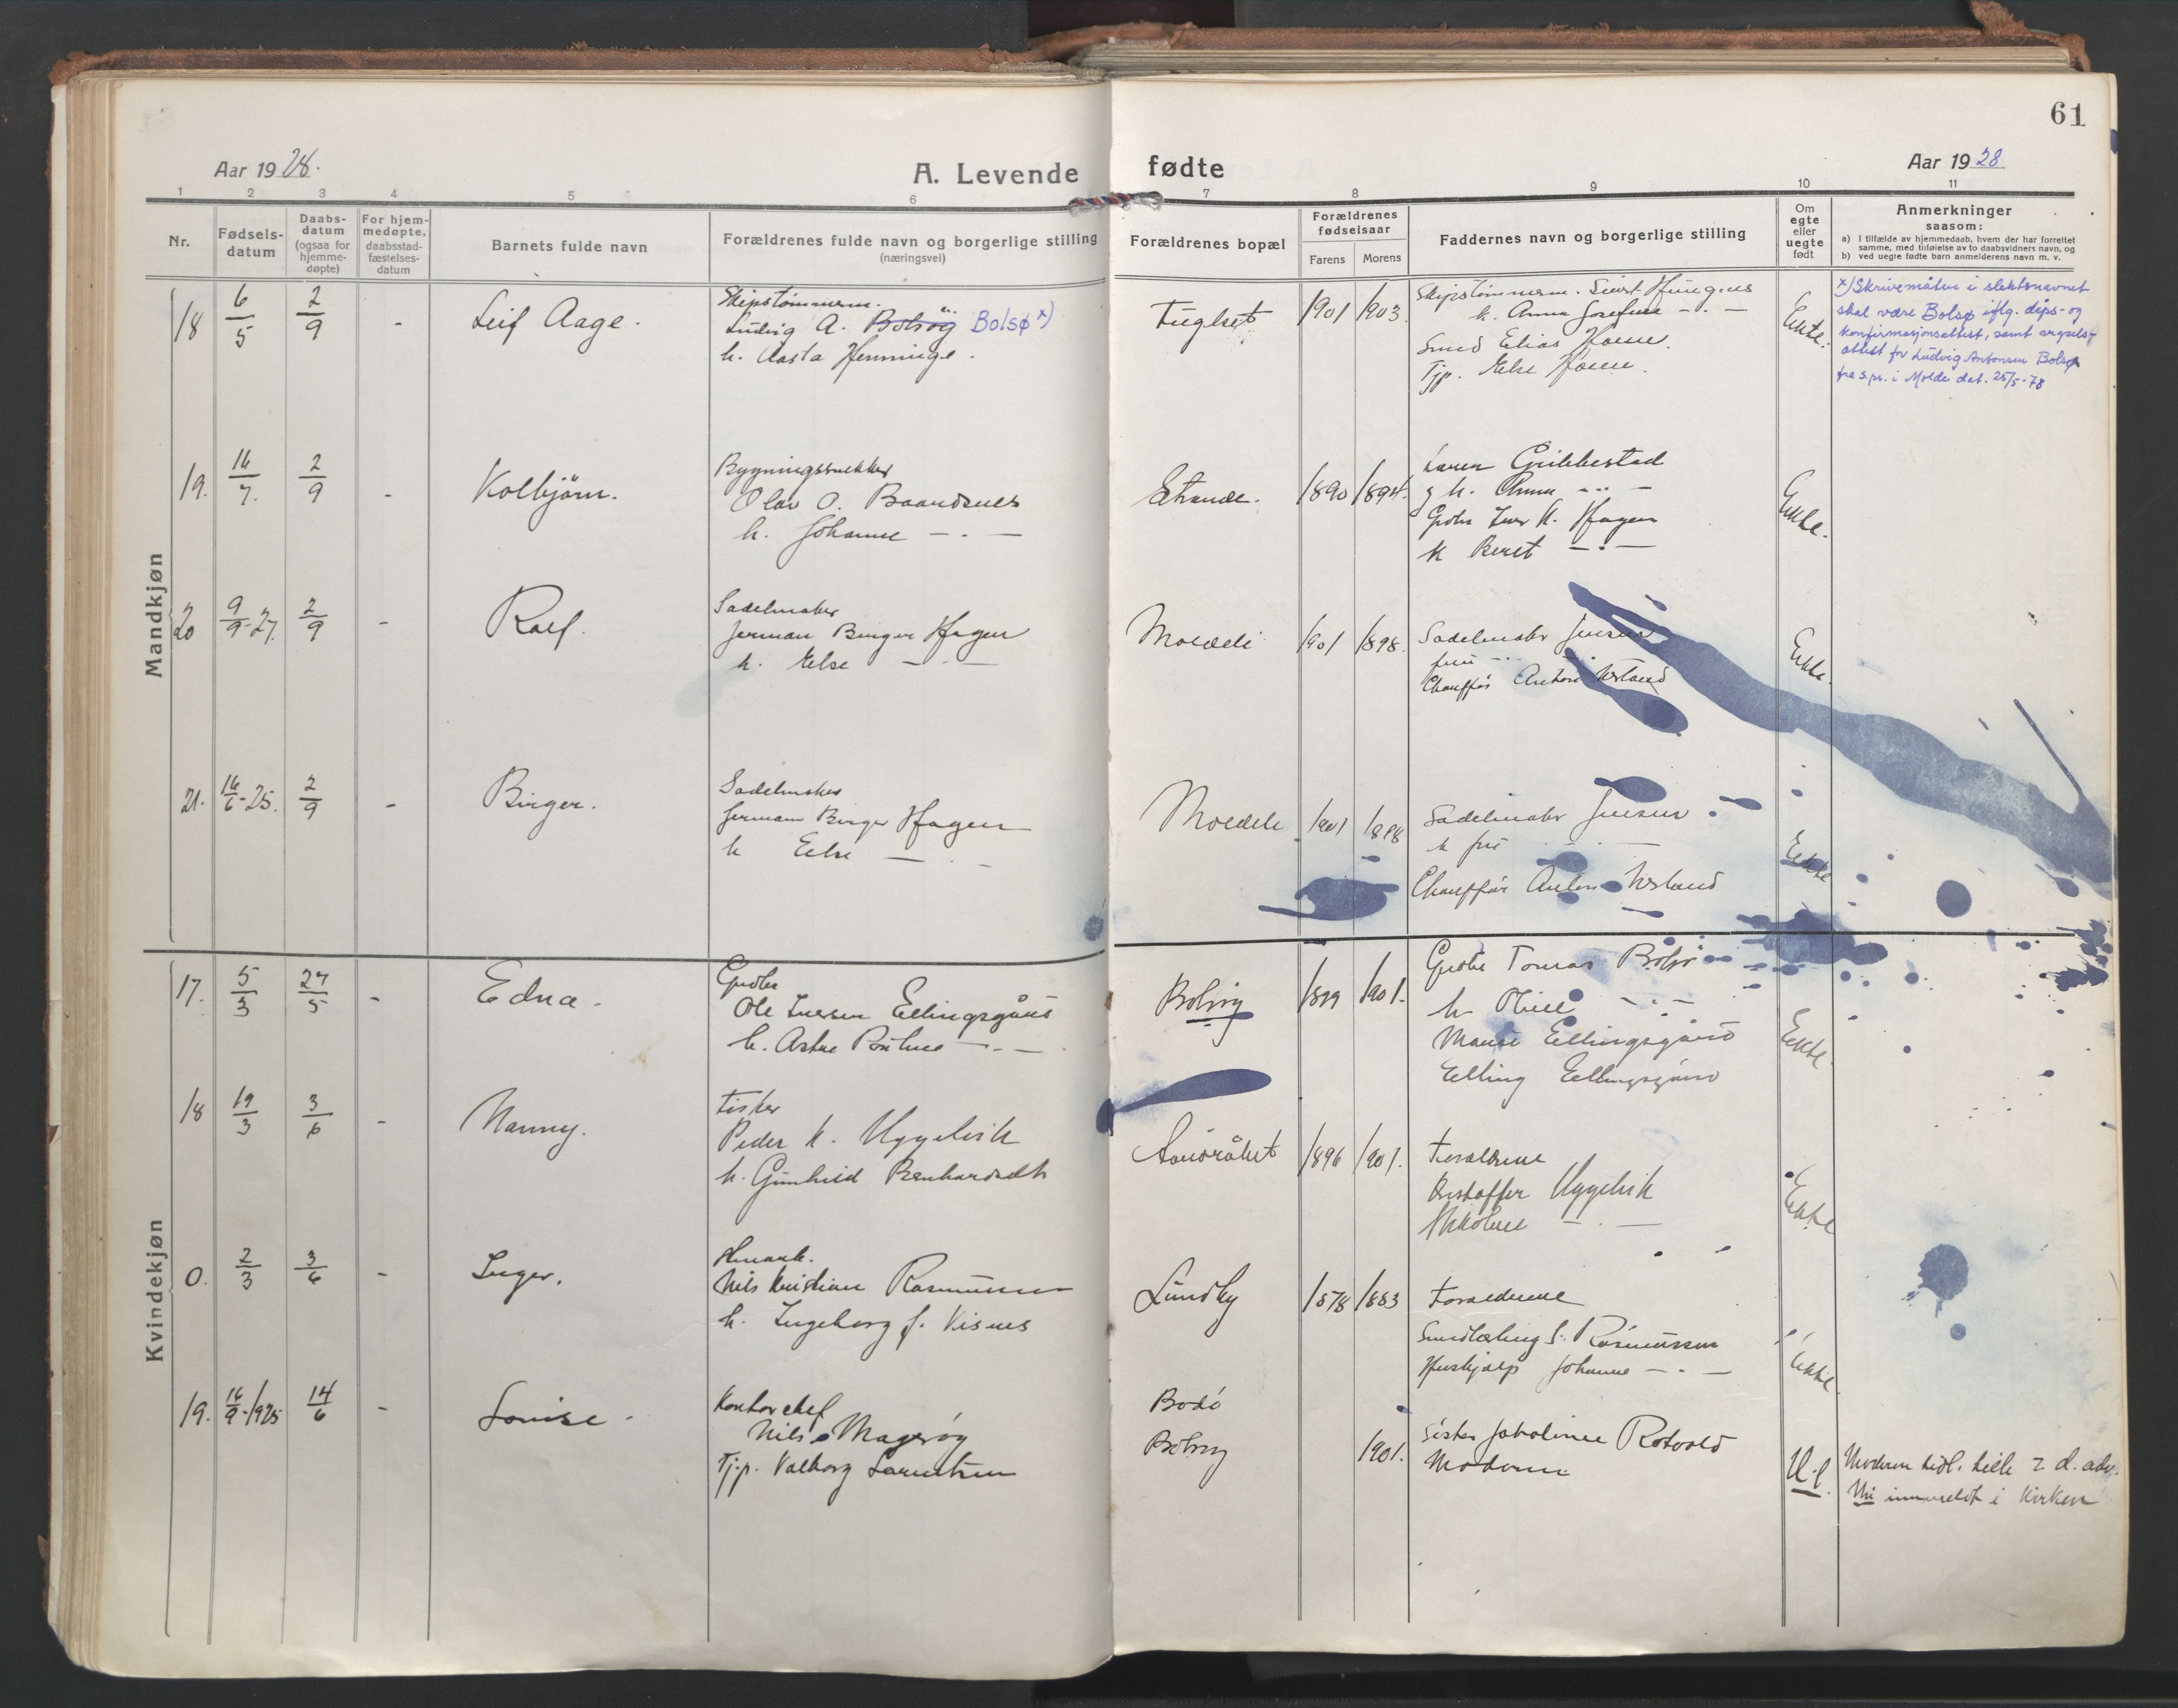 61
Aar 1928.
A. Levende fødte
Aar 1928
1 2 3 4 5 6 7 8 9 10 11
Nr.
Fødsels-
datum
Daabs-
datum
(ogsaa for
hjemme-
døpte)
For hjem-
medøpte,
daabsstad-
fæstelses-
datum
Barnets fulde navn
Forældrenes fulde navn og borgerlige stilling
(næringsvei)
Forældrenes bopæl
Forældrenes
fødselsaar
Farens Morens
Faddernes navn og borgerlige stilling
Om
egte
eller
uegte
født
Anmerkninger
saasom:
a) I tilfælde av hjemmedaab, hvem der har forrettet
samme, med tilføielse av to daabsvidners navn, og
b) ved uegte fødte barn anmelderens navn m. v.
Mandkjøn
18 6/5 2/9 - Leif Aage.
Skipstømmerm.
Ludvig A. Bolsøy Bolsø x)
h. Aasta Henninge.
Fuglset 1901 1903
Skipstømmerm. Sivert
k. Anna Josefine - . -
Smed Elias
Tjp. Else
Ekte.
x) Skrivemåten i slektsnavnet
skal være Bolsø iflg. dåps- og
konfirmasjonsattest, samt
attest for Ludvig Antonsen Bolsø
fra s.pr. i Molde dat. 25/5-78
19. 16/7. 2/9 - Kolbjörn.
Bygningssnekker
Olav O. Baandsnes
h. Johanne - . -
Strande. 1890 1894.
Gribbestad
g h. Anna - . . -
Grdbr Iver K. Hagen
k Beret - . -
Ekte.
20 9/9-27. 2/9 - Rolf.
Sadelmaker
Herman Birger Hagen
h. Else - . -
Moldeli 1901 1898.
Sadelmaker Jensen
frue - . . -
Chauffør Anton
Ekte.
21. 16/6-25. 2/9 - Birger.
Sadelmaker
Herman Birger Hagen
h Else - . -
Moldeli 1901 1898
Sadelmaker Jensen
k fru . . -
Chauffør Anton
Ekte
Kvindekjøn
17. 5/3 27/5 - Edna.
Grdbr
Ole Iversen Ellingsgård
h. Pauline - . -
Bolsøy 1899 1901.
Grdbr Tomas Bolsø
h. - . -
Ellingsgård
Elling Ellingsgård
Ekte.
18 19/3 3/6 - Nanny.
Fisker
Peder K. Uggelvik
h. Gunhild Bernhardsdtr
1896 1901.
Forældrene
Kristoffer Uggelvik
Nikoline - . -
Ekte
0. 2/3 3/6 - Inger.
Nils Kristian Rasmussen
h. Ingeborg f. Visnes
Lundby 1878 1883
Forældrene
Rasmussen
Hushjælp Johanne - . -
Ekte.
19. 16/9-1925 14/6 - Louise -
Kontorchef
Nils Magerøy
Tj.p. Valborg
Bodö
Bolsøy
1901.
Söster Rotvold
Moderen
U. e.
Moderen tidl. 7. d. adv.
Nu innmeldt i Kirken